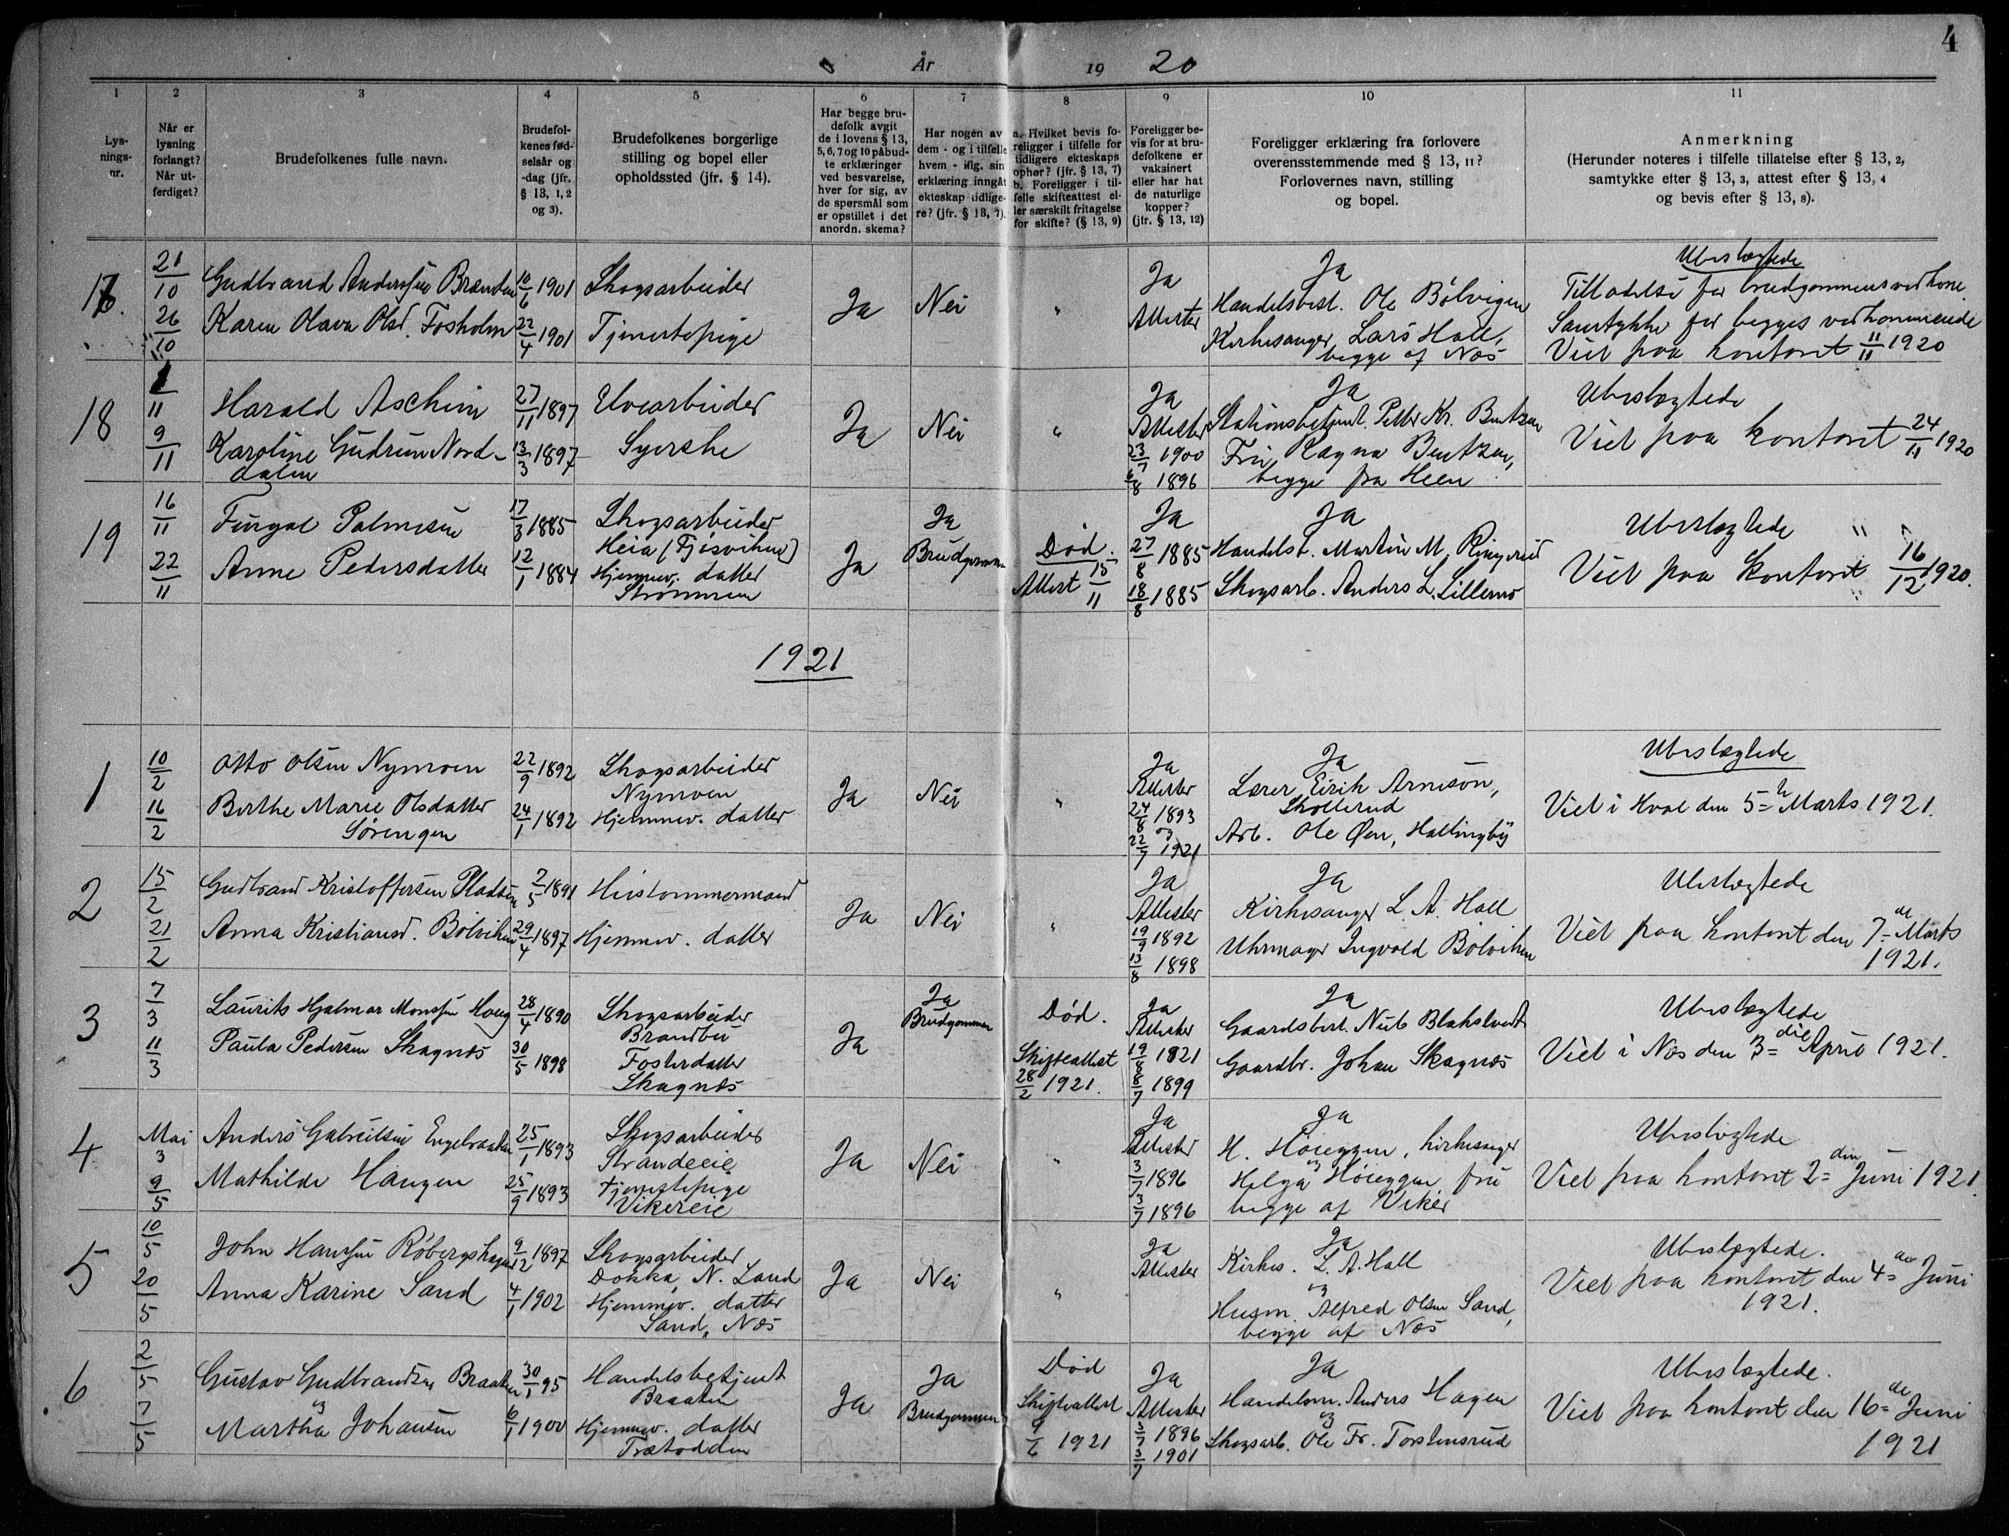 4
År 1920
1
Lys-
nings-
nr.
2
Når er
lysning
forlangt?
Når ut-
ferdiget?
3
Brudefolkenes fulle navn.
4
Brudefol-
kenes fød-
selsår og
-dag (jfr.
§ 13, 1, 2
og 3).
5
Brudefolkenes borgerlige
stilling og bopel eller
opholdssted (jfr. § 14).
6
Har begge bru-
defolk avgit
de i lovens § 13,
5, 6, 7 og 10 påbud-
te erklæringer
ved besvarelse,
hver for sig, av
de spørsmål som
er opstillet i det
anordn. skema?
7
Har nogen av
dem - og i tilfelle
hvem - iflg. sin
erklæring inngåt
ekteskap tidlige-
re? (jfr. § 13, 7).
8
a. Hvilket bevis fo-
religger i tilfelle for
tidligere ekteskaps
ophør? (jfr. § 13, 7)
b. Foreligger i til-
felle skifteattest el-
ler særskilt fritagelse
for skifte? (§ 13, 9)
9
Foreligger be-
vis for at bru-
defolkene er
vaksinert
eller har hat
de naturlige
kopper?
(jfr. § 13, 12)
10
Foreligger erklæring fra forlovere
overensstemmende med § 13, 11?
Forlovernes navn, stilling
og bopel.
11
Anmerkning
(Herunder noteres i tilfelle tillatelse efter § 13, 2,
samtykke efter § 13, 3, attest efter § 13, 4
og bevis efter § 13, 8).
21/10
26/10
Gudbrand Anderssen Brænden
Karen Olava Olsd. Fosholm
10/6 1901
22/4 1901
Skogsarbeider
Tjenestepige
Ja
Nei
"
Ja
Attester
Ja
Handelsbest. Ole Bølvigen
Kirkesanger Lars Hall,
begge af Næs
Ubeslægtede
Tilladelse for brudgommens vedkom.
Samtykke for begges vedkommende
Viet paa kontoret 11/11 1920
18
1/11
9/11
Harald Aschim
Karoline Gudrun Nord-
dalen
27/11 1897
13/3 1897
Uvearbeider
Syerske
Ja
Nei
"
Ja
Attester
23/7 1900
6/8 1896
Ja
Stationsbetjent. Petter Kr. Bentzen
Fru Ragna Bentzen,
begge fra Heen
Ubeslægtede
Viet paa kontoret 24/11 1920
19
16/11
22/11
Fingal Palmesen
Anne Pedersdatter
17/3 1885
12/1 1884
Skogsarbeider
Heia (Fjøsviken)
Hjemmev. datter
Strømmen
Ja
Ja
Brudgommen
Død.
Attest 15/11
Ja
27/8 1885
18/8 1885
Ja
Handelsb. Martin M. Ringerud
Skogsarb. Anders L. Lillemo
Ubeslægtede
Viet paa kontoret 16/12 1920.
1921
1
10/2
16/2
Otto Olsen Nymoen
Berthe Marie Olsdatter
Sørengen
22/9 1892
24/1 1892
Skogsarbeider
Nymoen
Hjemmev. datter
Ja
Nei
"
Ja
Attester
24/8 1893
22/7 1921
Ja
Lærer Eirik Arneson,
Skollerud
Arb. Ole Øen, Hallingby
Ubeslægtede
Viet i Hval den 5te Marts 1921.
2
15/2
21/2
Gudbrand Kristoffersen Pladsen
Anna Kristiansd. Bölviken
7/5 1891
29/4 1897
Huistømmermand
Hjemmev. datter
Ja
Nei
"
Ja
Attester
19/9 1892
13/8 1898
Ja
Kirkesanger L. A. Hall
Uhrmager Ingvald Bölviken
Ubeslægtede
Viet paa kontoret den 7de Marts
1921.
3
7/3
11/3
Laurits Hjalmar Monssen Haug
Paula Pedersen Skagnæs
28/4 1890
30/5 1898
Skogsarbeider
Brandbu
Fosterdatter
Skagnæs
Ja
Ja
Brudgommen
Død.
Skifteattest
28/2 1921.
Ja
Attester
19/8 1821
8/7 1899
Ja
Gaardsbest. Nils Blakstvedt
Gaardbr. Johan Skagnæs
Ubeslægtede
Viet i Næs den 3die April 1921.
4
Mai
3
9/5
Anders Gabrielsen Engebraaten
Mathilde Haugen
25/1 1893
25/9 1893
Skogsarbeider
Strandeeie
Tjenestepige
Vikereie
Ja
Nei
"
Ja
Attester
3/7 1896
3/7 1896
Ja
H. Høieggen, kirkesanger
Helga Høieggen, fru
begge af Viker
Ubeslægtede
Viet paa kontoret 2den Juni 1921.
5
10/5
20/5
John Hanssen Røbergshagen
Anna Karine Sand
9/12 1897
4/1 1902
Skogsarbeider
Dokka, N. Land
Hjemmev. datter
Sand, Næs
Ja
Nei
"
Ja
Attester
Ja
Kirkes. L. A. Hall
Husm. Alfred Olsen Sand,
begge af Næs
Ubeslægtede.
Viet paa kontoret den 4de Juni
1921.
6
2/5
7/5
Gustav Gudbrandsen Braaten
Martha Johansen
30/1 95
6/1 1900
Handelsbetjent
Braaten
Hjemmev. datter
Trætodden
Ja
Ja
Brudgommen
Død
Skifteattest
9/6 1921
Ja
Attester
3/7 1896
3/7 1901
Ja
Handelsm. Anders Hagen
Skogsarb. Ole Fr. Torstensrud
Ubeslægtede.
Viet paa kontoret den 16de Juni
1921